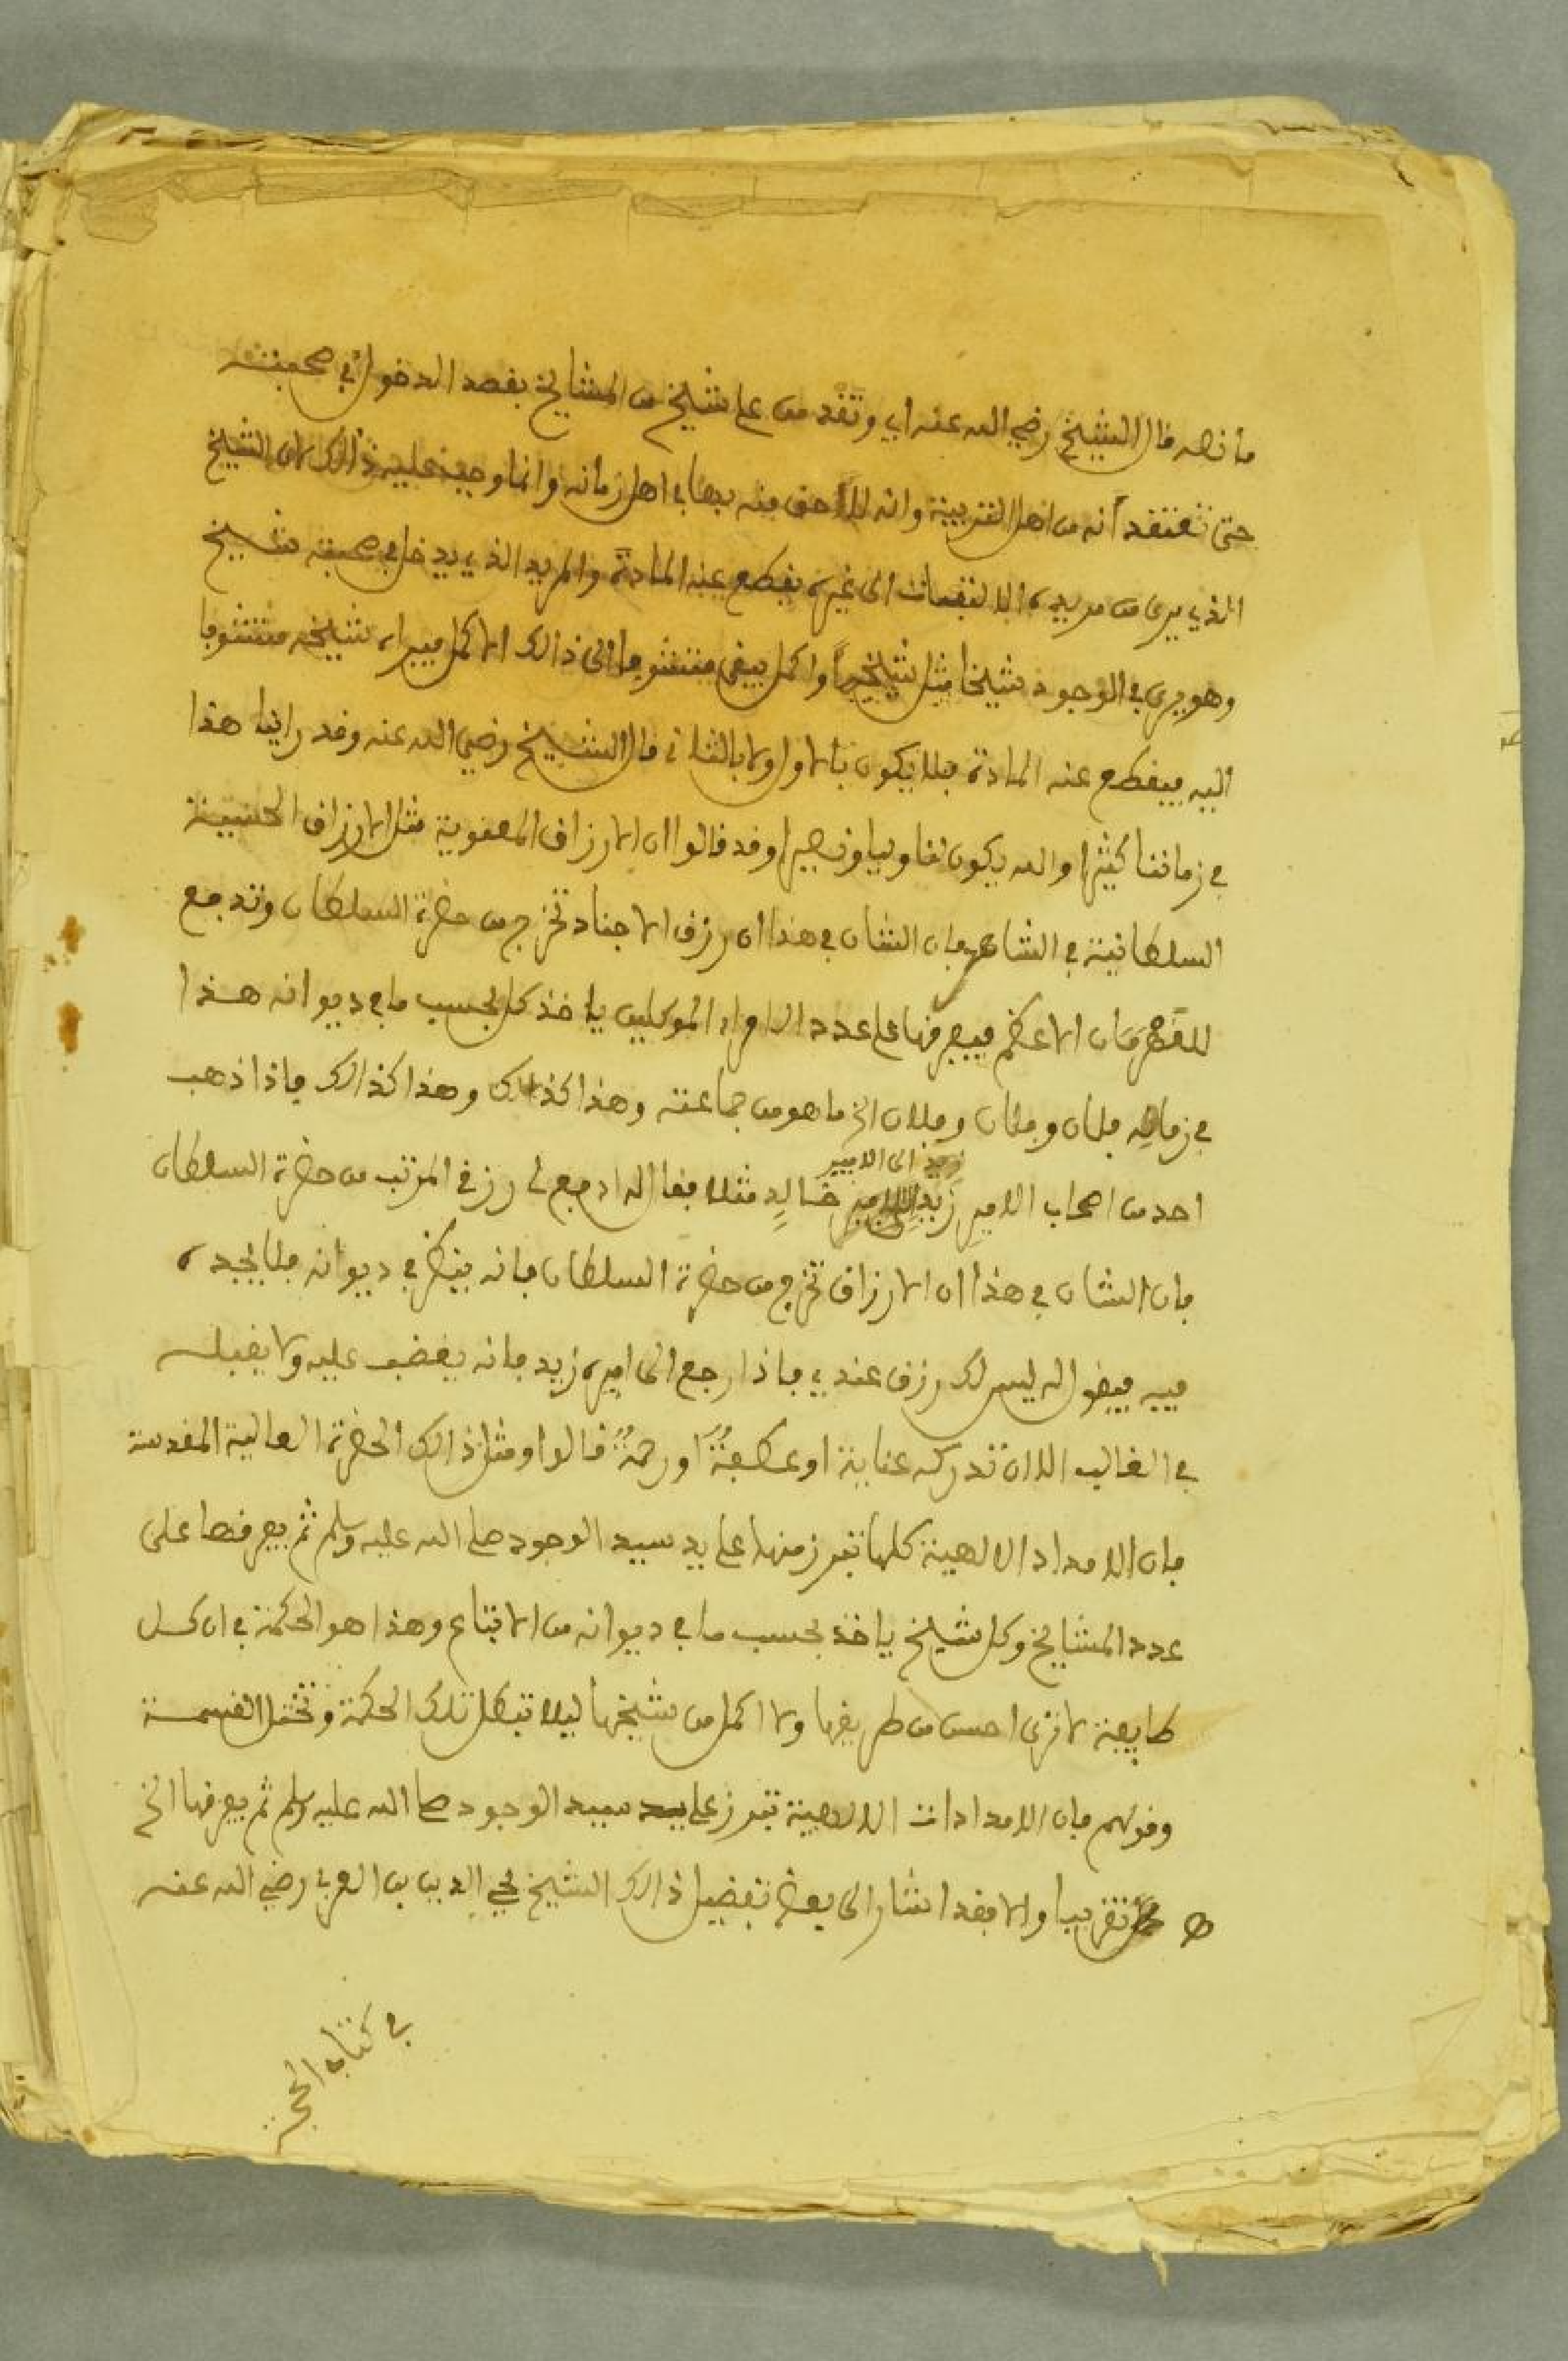 ما نصه قال الشيخ رضي الله عنه اي ولا تقدمن على شيخ من المشايخ بقصد الدخول في صحبته
حتى تعتقد انه من اهل التربية وانه لا احق منه بها في اهل زمانه وانما وجب عليه ذالك لان الشيخ
الذي يرى من مريده الالتفات الى غيره يقطع عنه المادة والمريد الذي يدخل في صحبة شيخ
وهو يرى في الوجود شيخا مثل شيخه او اكمل يبقى متشوفا الى ذالك الاكمل فيراه شيخه متشوفا
اليه فيقطع عنه المادة فلا يكون بالاول ولا بالثاني قال الشيخ رضي الله عنه وقد راينا هذا
في زماننا كثيرا والله يكون لنا وليا ونصيرا وقد قالوا ان الارزاق المعنوية مثل الارزاق الحسية
السلطانية في الشاهد فان الشان في هذا ان رزق الاجناد تخرج من حضرة السلطان وتدفع
للقهرمان الاعظم فيفرقها على عدد الامراء الموكلين ياخذ كل بحسب ما في ديوانه هذا
في زمامه فلان وفلان وفلان الخ ما هو من جماعته وهذا كذالك وهذا كذالك فاذا ذهب
احد من اصحاب الامير زيد الى الامير خالد مثلا فقال له ادفع لي رزقي المرتب من حضرة السلطان
فان الشان في هذا ان الارزاق تخرج من حضرة السلطان فانه ينظر في ديوانه فلا يجده
فيه فيقول له ليس لك رزق عندي فاذا رجع الى اميره زيد فانه يغضب عليه ولا يقبله
في الغالب الا ان تدركه عناية او عطفة او رحمة قالوا ومثل ذالك الحضرة العالية المقدسة
فان الامداد الالهية كلها تبرز منها على يد سيد الوجود صلى الله عليه وسلم ثم يفرقها على
عدد المشايخ وكل شيخ ياخذ بحسب ما في ديوانه من الاتباع وهذا هو الحكمة في ان كل
طايفة لا ترى احسن من طريقها ولا اكمل من شيخها ليلا تبطل تلك الحكمة وتختل القسمة
وقولهم فان الامدادات الالهية تبرز على يد سيد الوجود صلى الله عليه وسلم ثم يفرقها الخ
تقريبا والا فقد اشار الى بعض تفصيل ذالك الشيخ محي الدين بن العربي رضي الله عنه
في كتاب